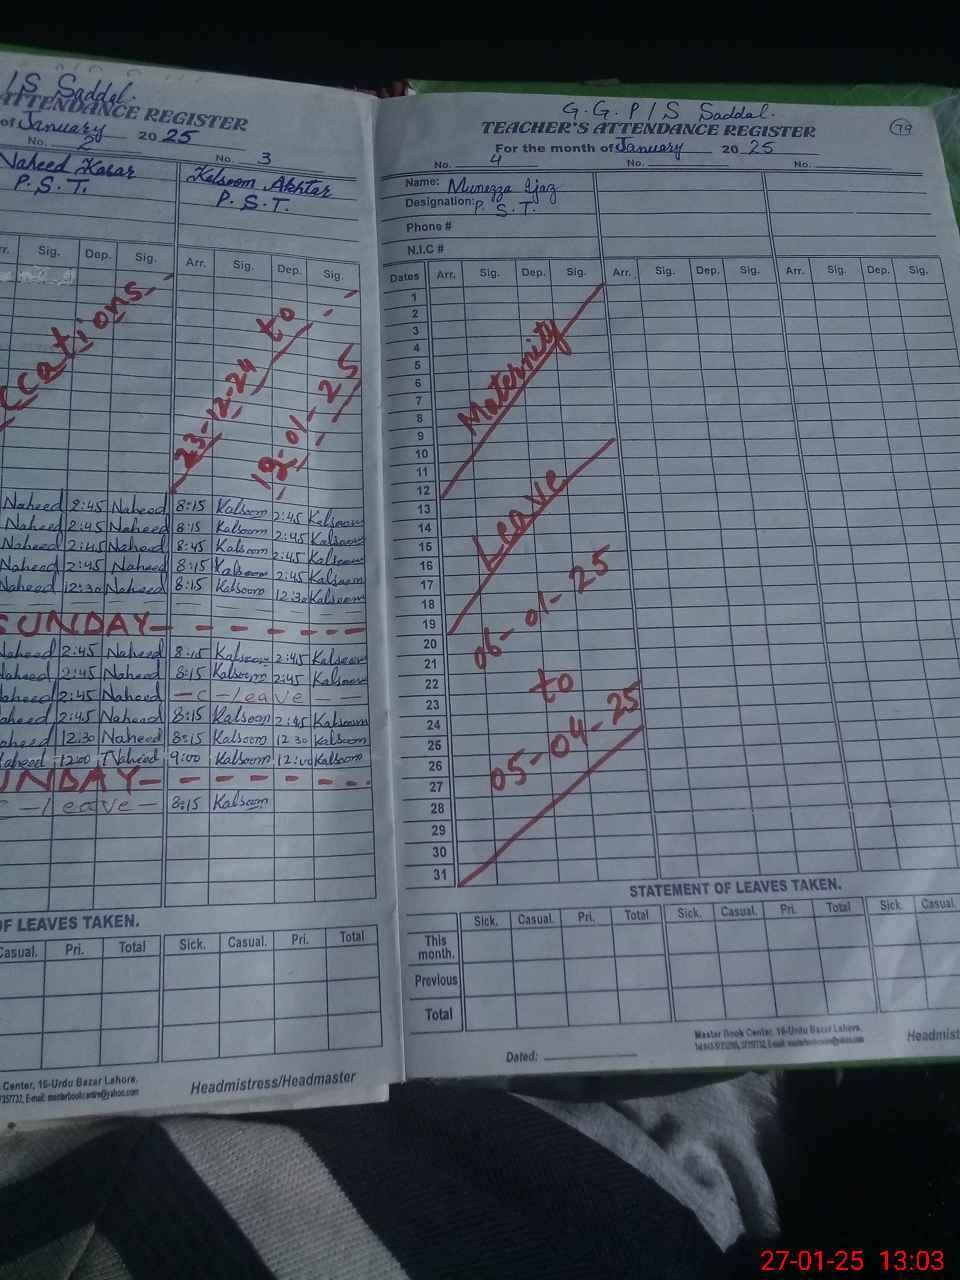 /S Saddal.
ATTENDANCE REGISTER
of January 2025
No. 2 No. 3
Naheed Kasar Kalsoom Akhtar
P.S.T. P.S.T.
Sig. Dep. Sig. Arr. Sig. Dep. Sig.
23-12-24 to
12-01-25
Naheed 2:45 Naheed 8:15 Kalsoom 2:45 Kalsoom
Naheed 2:45 Naheed 8:15 Kalsoom 2:45 Kalsoom
Naheed 2:45 Naheed 8:45 Kalsoom 2:45 Kalsoom
Naheed 2:45 Naheed 8:15 Kalsoom 2:45 Kalsoom
Naheed 12:30 Naheed 8:15 Kalsoom 12:30 Kalsoom
SUNDAY
Naheed 2:45 Naheed 8:15 Kalsoom 2:45 Kalsoom
Naheed 2:45 Naheed 8:15 Kalsoom 2:45 Kalsoom
Naheed 2:45 Naheed -C-leave-
Naheed 2:45 Naheed 8:15 Kalsoom 2:45 Kalsoom
Naheed 12:30 Naheed 8:15 Kalsoom 12:30 Kalsoom
Naheed 12:00 Naheed 9:00 Kalsoom 12:00 Kalsoom
UNDAY
C-leave- 8:15 Kalsoom
OF LEAVES TAKEN.
Casual. Pri. Total Sick. Casual. Pri. Total
Center, 16-Urdu Bazar Lahore.
Headmistress/Headmaster
G.G.P/S Saddal.
79
TEACHER'S ATTENDANCE REGISTER
For the month of January 2025
No. 4 No. No.
Name: Munezza Ijaz
Designation: P.S.T.
Phone #
N.I.C #
Dates Arr. Sig. Dep. Sig. Arr. Sig. Dep. Sig. Arr. Sig. Dep. Sig.
1
2
3
4
5
6
7
8
9
10
11
12
13
14
15
16
17
18
19
20
21
22
23
24
25
26
27
28
29
30
31
Maternity
Leave
06-01-25
to
05-04-25
STATEMENT OF LEAVES TAKEN.
Sick. Casual. Pri. Total Sick. Casual. Pri. Total Sick. Casual.
This
month.
Previous
Total
Master Book Center, 16-Urdu Bazar Lahore.
Dated:
Headmist
27-01-25 13:03